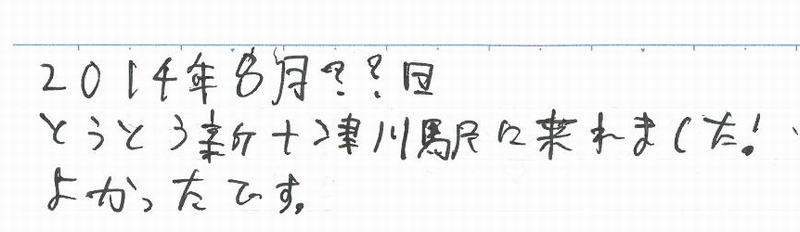 2014年8月??日
とうとう新十津川駅に来れました!
よかったです。